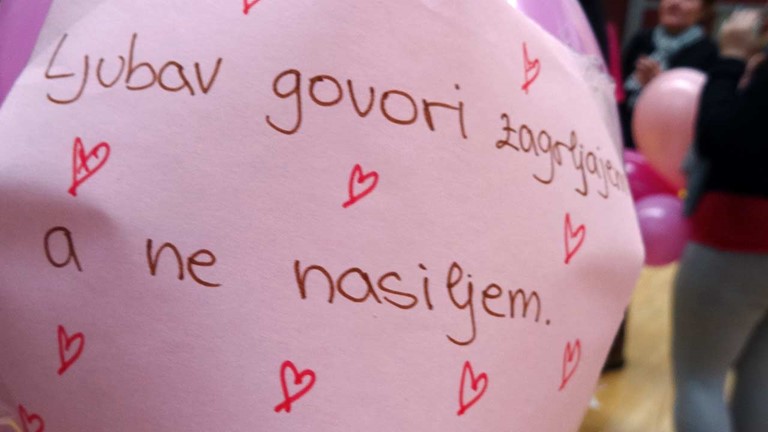 Ljubav govori zagrljajem
a ne nasiljem.